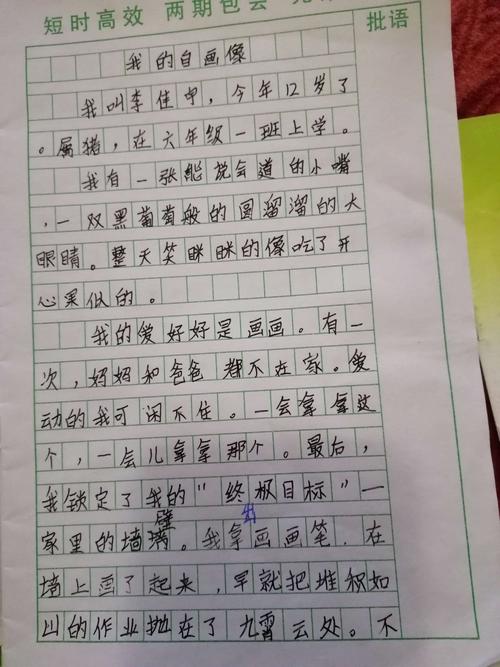 短时高效 两期包会
批语
我的自画像
我叫李佳申，今年12岁了
。属猪，在六年级一班上学。
我有一张能说会道的小嘴
，一双黑葡萄般的圆溜溜的大
眼睛。整天笑眯眯的像吃了开
心果似的。
我的爱好好是画画。有一
次，妈妈和爸爸都不在家。爱
动的我可闲不住。一会拿拿这
个，一会儿拿拿那个。最后，
我锁定了我的“终极目标”一
家里的墙壁。我拿出画画笔，在
墙上画了起来，早就把堆积如
山的作业抛在了九霄云处。不